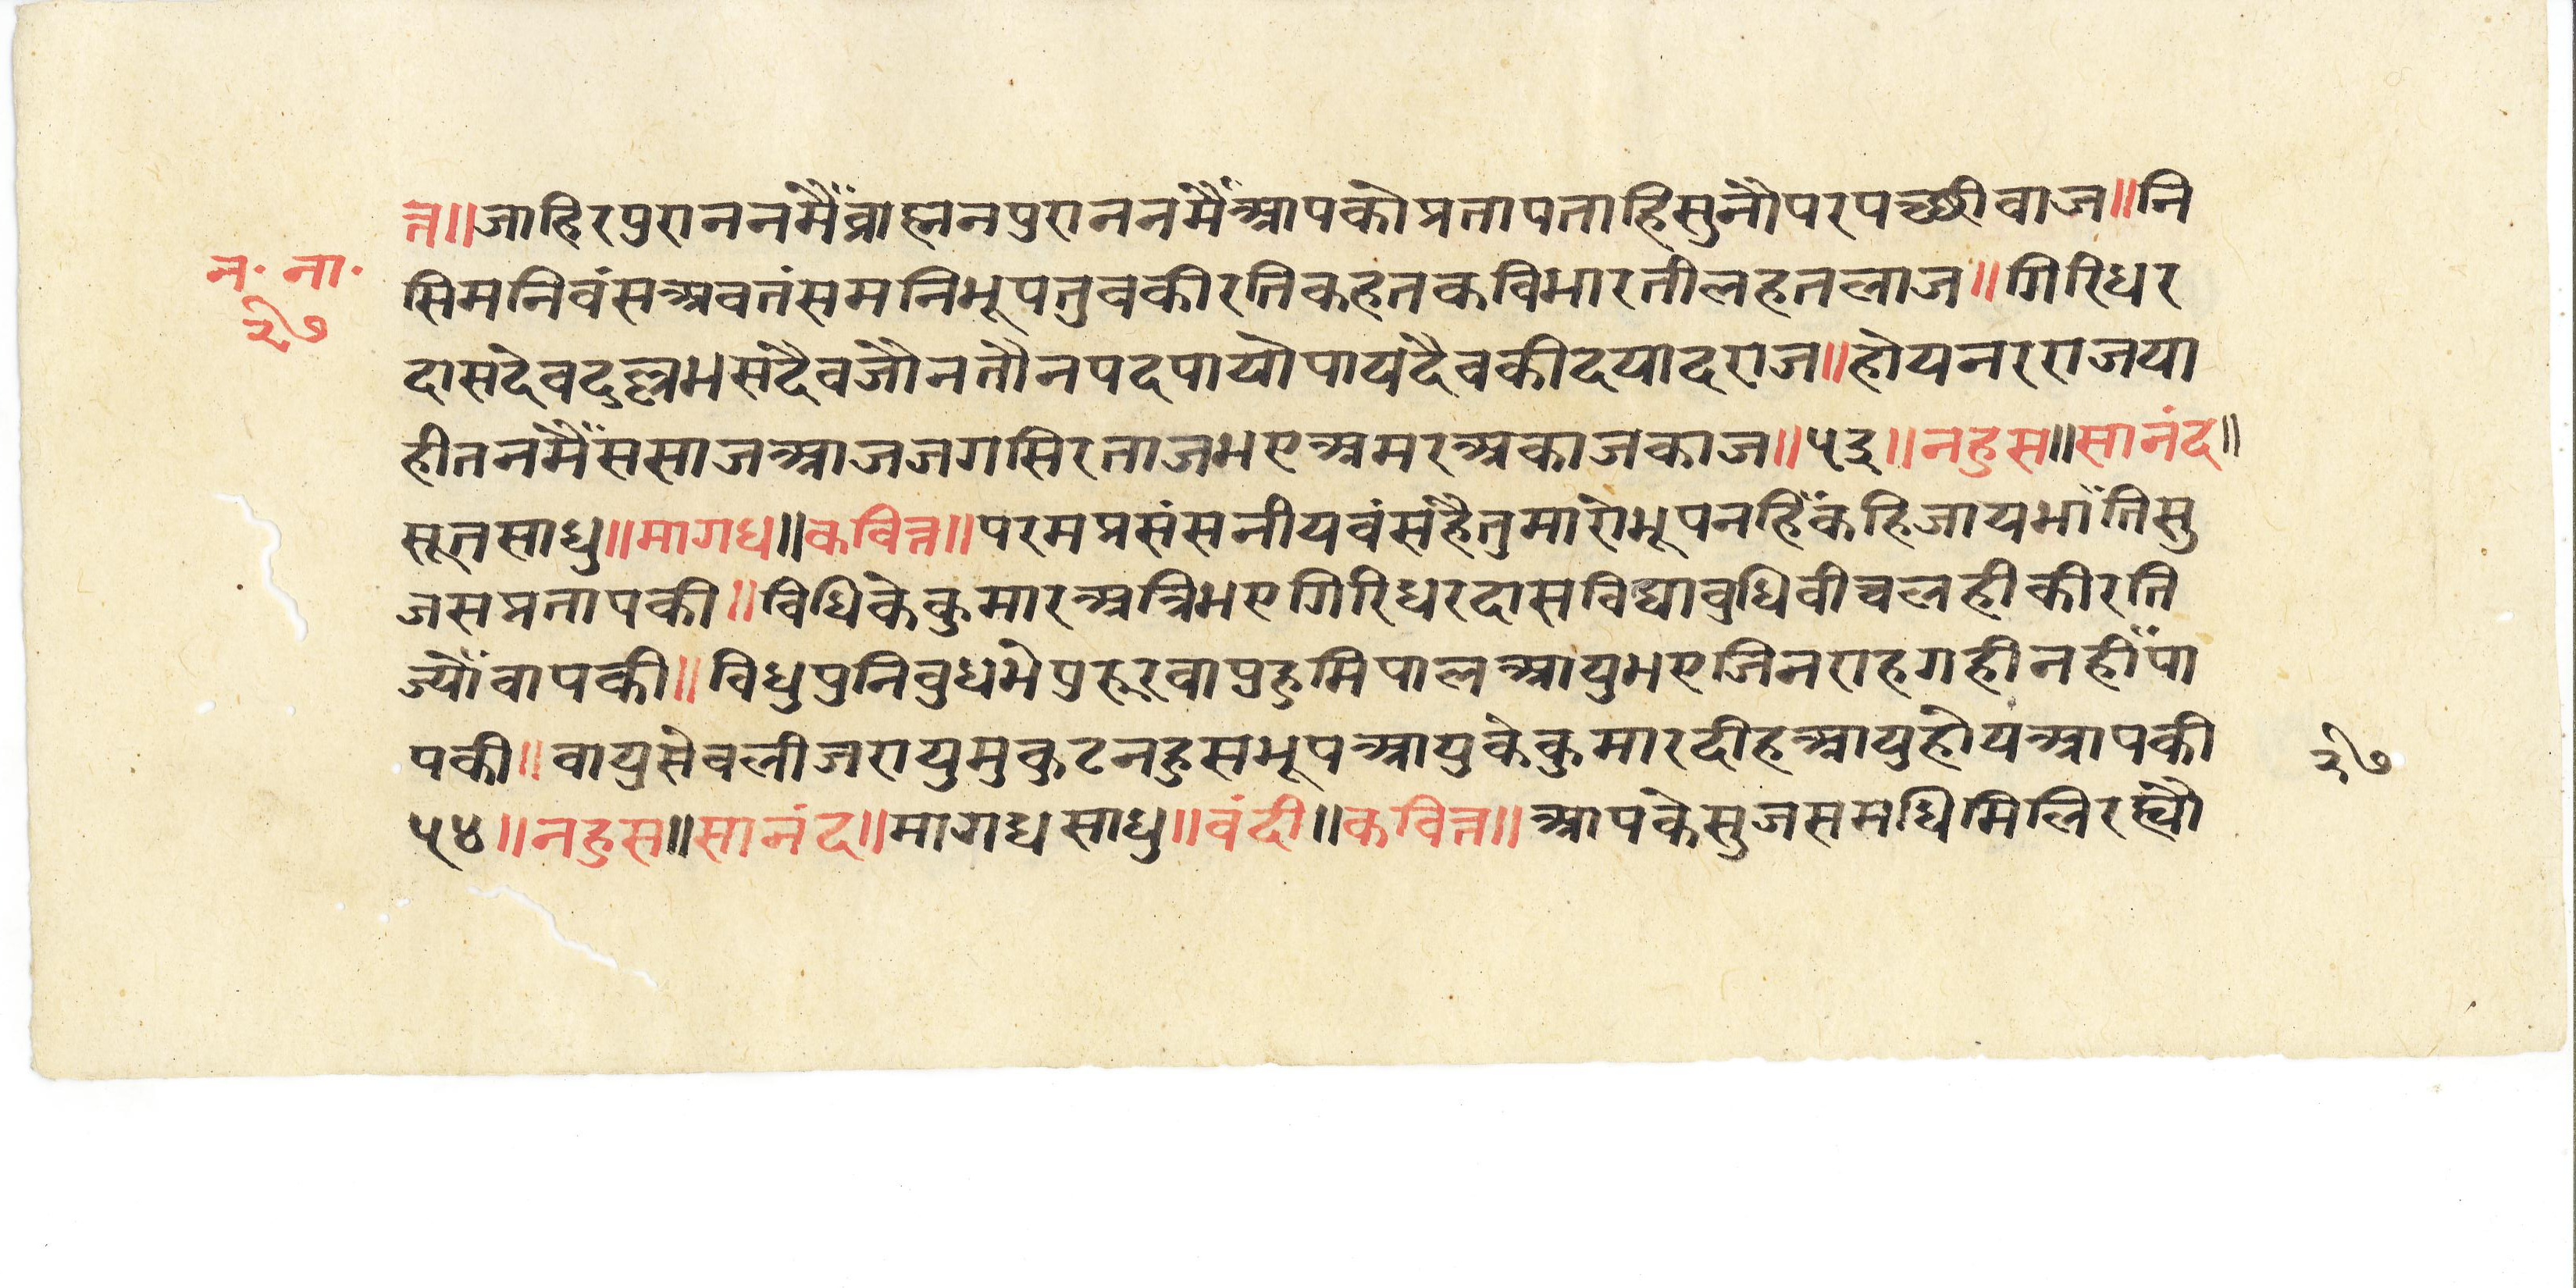 त्त॥जाहिरपुराननमैँव्राह्मनपुराननमैँआपकोप्रतापताहिसुनौपरपच्छीवाज॥नि
न॰ ना॰
२७
सिमनिवंसअवतंसमनिभूपतुवकीरतिकहतकविभारतीलहतलाज॥गिरिधर
दासदेवदुल्लभसदैवजौनतौनपदपायोपायदैवकीदयादराज॥होयनरराजया
हीतनमैँससाजआजजगसिरताजभएअमरअकाजकाज॥५३॥नहुस॥सानंद॥
सूतसाधु॥मागध॥कवित्त॥परमप्रसंसनीयवंसहैतुमारोभूपनहिँकहिजायभाँतिसु
जसप्रतापकी॥विधिकेकुमारअत्रिभएगिरिधरदासविद्यावुधिवीचलहीकीरति
ज्योँवापकी॥विधुपुनिवुधभेपुरूरवापुहुमिपालआयुभएजिनराहगहीनहीँपा
पकी॥वायुसेवलीजरायुमुकुटनहुसभूपआयुकेकुमारदीहआयुहोयआपकी
२७
५४॥नहुस॥सानंद॥मागधसाधु॥वंदी॥कवित्त॥आपकेसुजसमधिमिलिरह्यौ